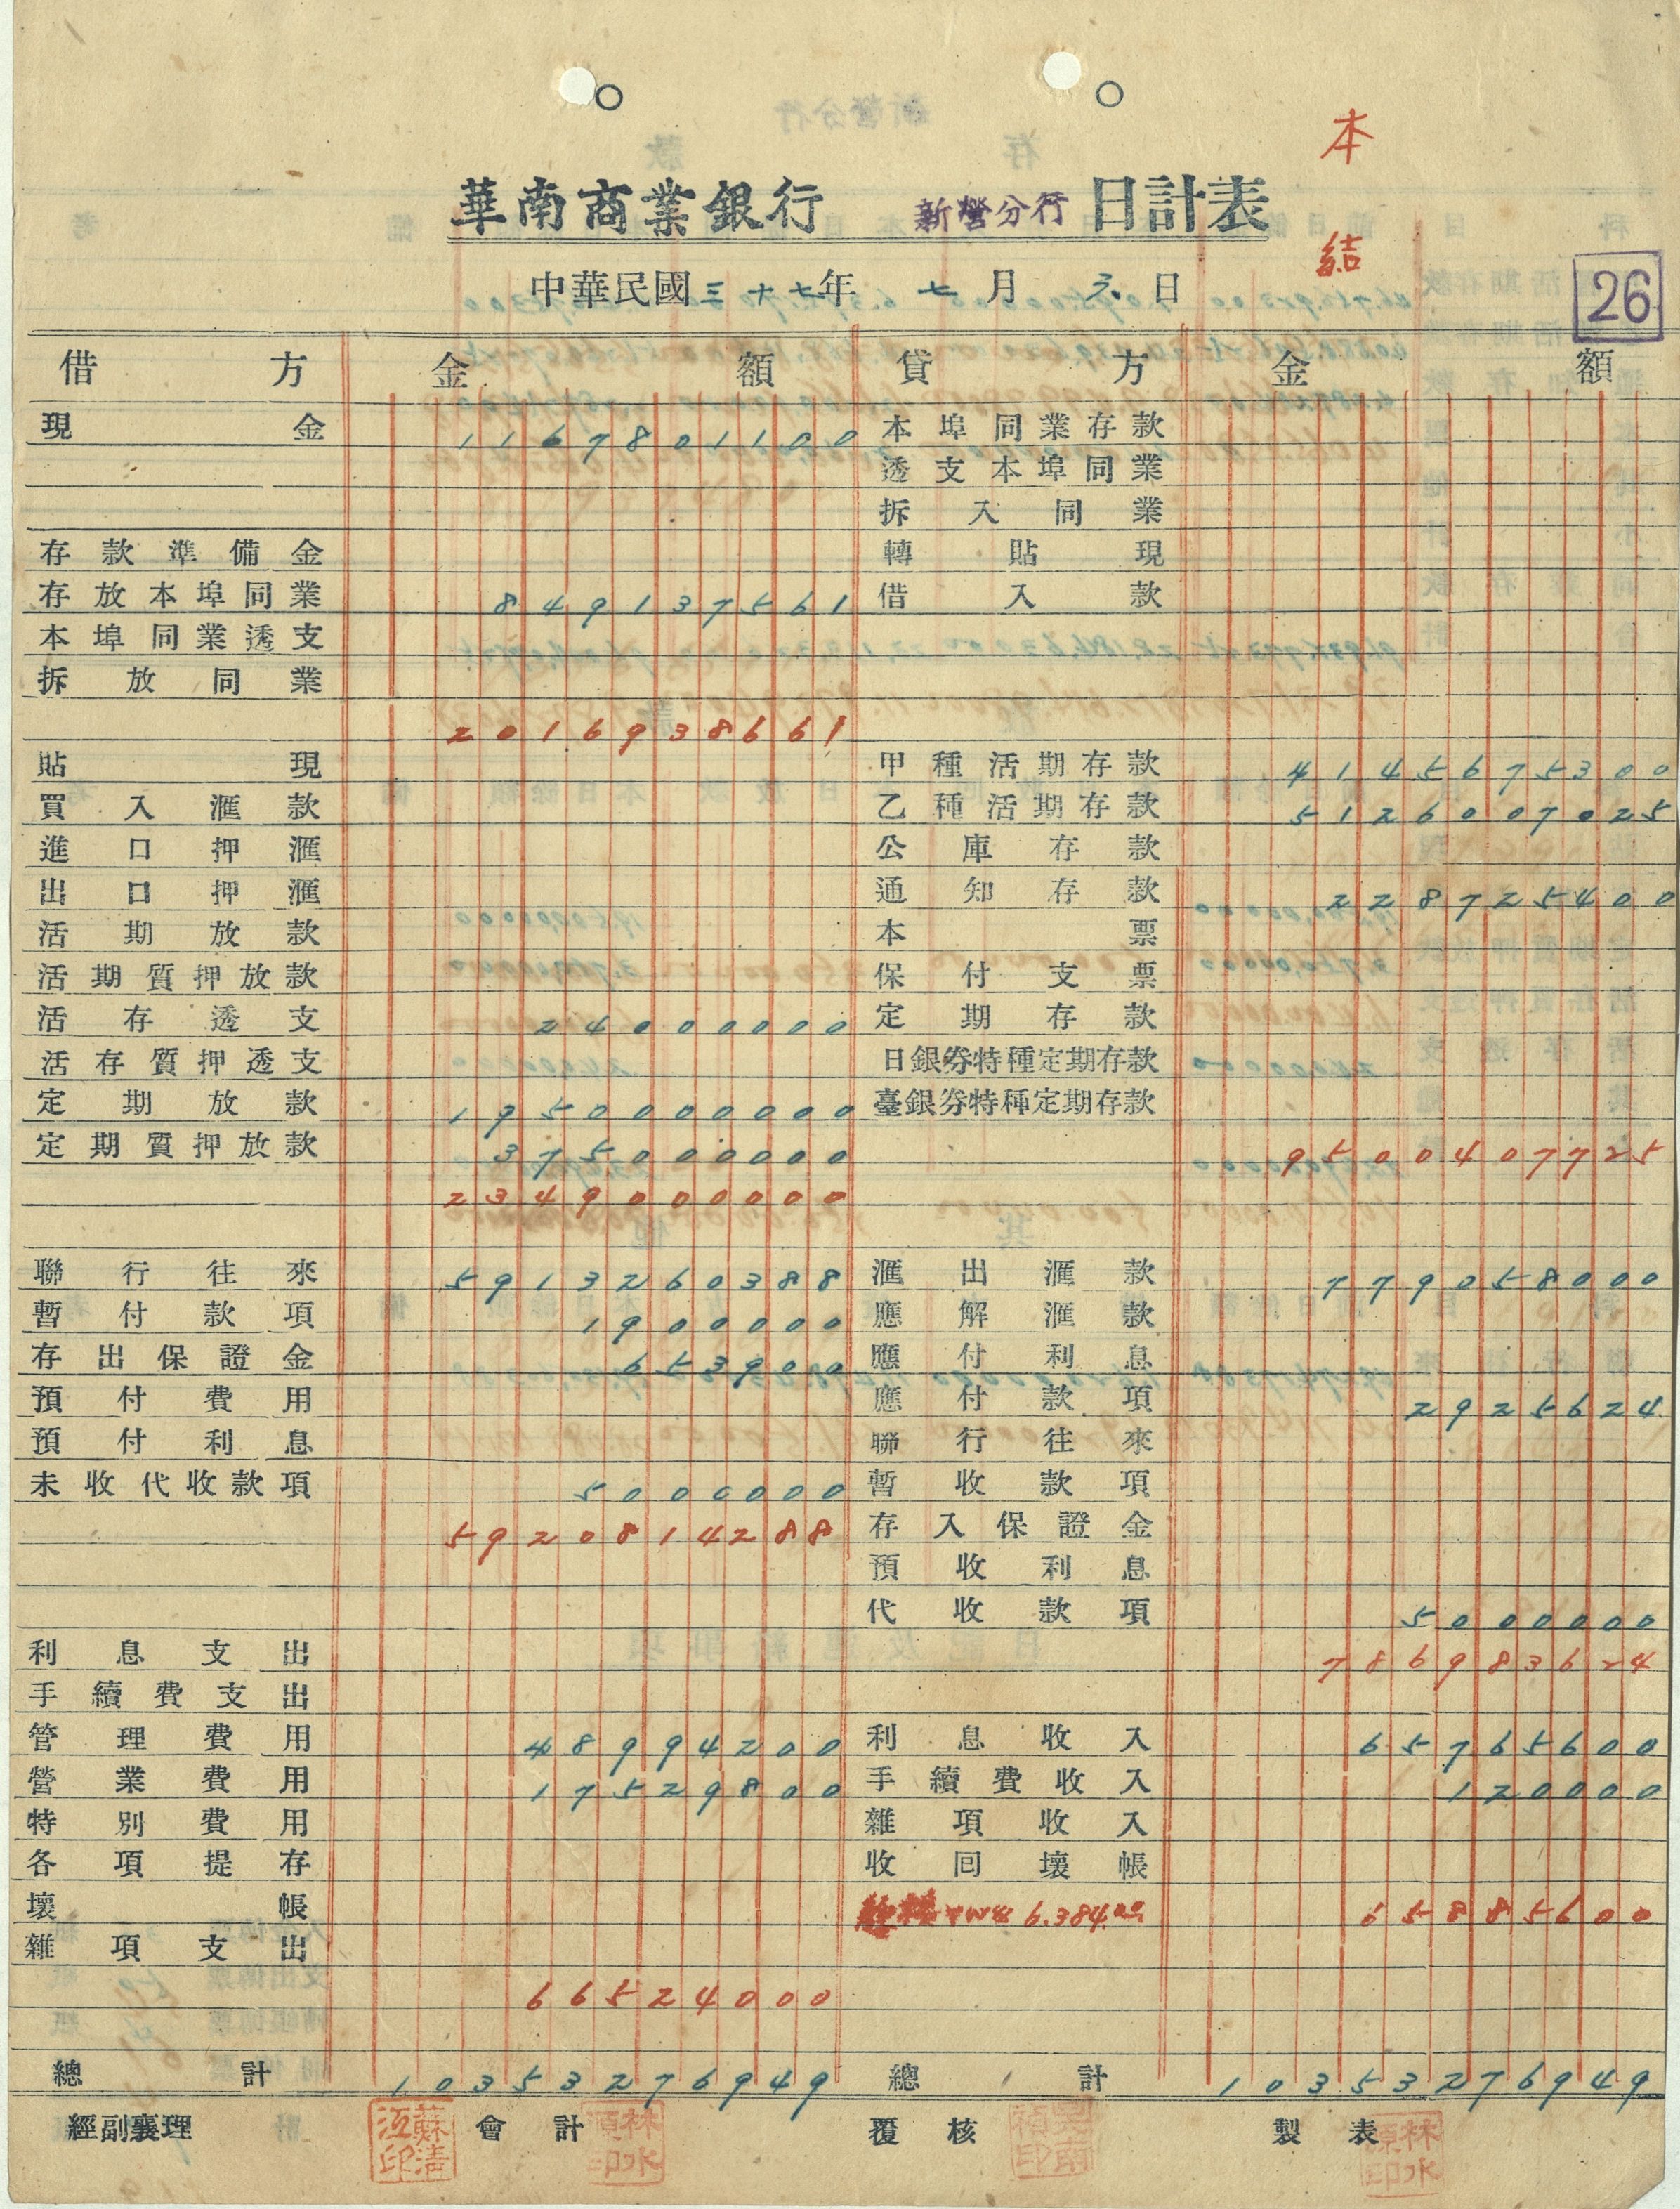 本
結
華南商業銀行 新營分行 日計表
中華民國三十七年 七月 日
26
借方 金額 貸方 金額
現金 1167801100 本埠同業存款
透支本埠同業
拆入同業
存款準備金 轉貼現
存放本埠同業 849137561 借入款
本埠同業透支
拆放同業
2016938661
貼現 甲種活期存款 4145675300
買入滙款 乙種活期存款 5126007025
進口押滙 公庫存款
出口押滙 通知存款 228725400
活期放款 本票
活期質押放款 保付支票
活存透支 24000000 定期存款
活存質押透支 日銀劵特種定期存款
定期放款 1950000000 臺銀劵特種定期存款
定期質押放款 375000000 9500407725
2349000000
聯行往來 5913260388 滙出滙款 779058000
暫付款項 1900000 應解滙款
存出保證金 653900 應付利息
預付費用 應付款項 2925624
預付利息 聯行往來
未收代收款項 5000000 暫收款項
5920814288 存入保證金
預收利息
代收款項 5000000
利息支出 786983624
手續費支出
管理費用 48994200 利息收入 65765600
營業費用 17529800 手續費收入 120000
特別費用 雜項收入
各項提存 收回壞帳
壞帳 6.384.00 65885600
雜項支出
66524000
總計 10353276949 總計 10353276949
經副襄理 會計 覆核 製表